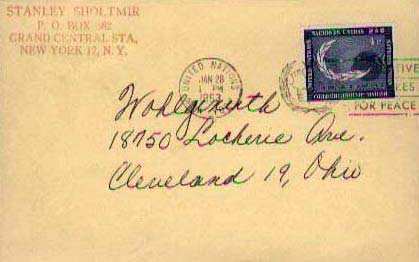 STANLEY SHOLTMIR
P. O. BOX 982
GRAND CENTRAL STA,
NEW YORK 17, N.Y.
NACIONES UNIDAS
4¢
UNITED NATIONS
JAN 28
PM
1963
FOR PEACE
Wohlgemuth
18750 Locherie Ave.
Cleveland 19, Ohio